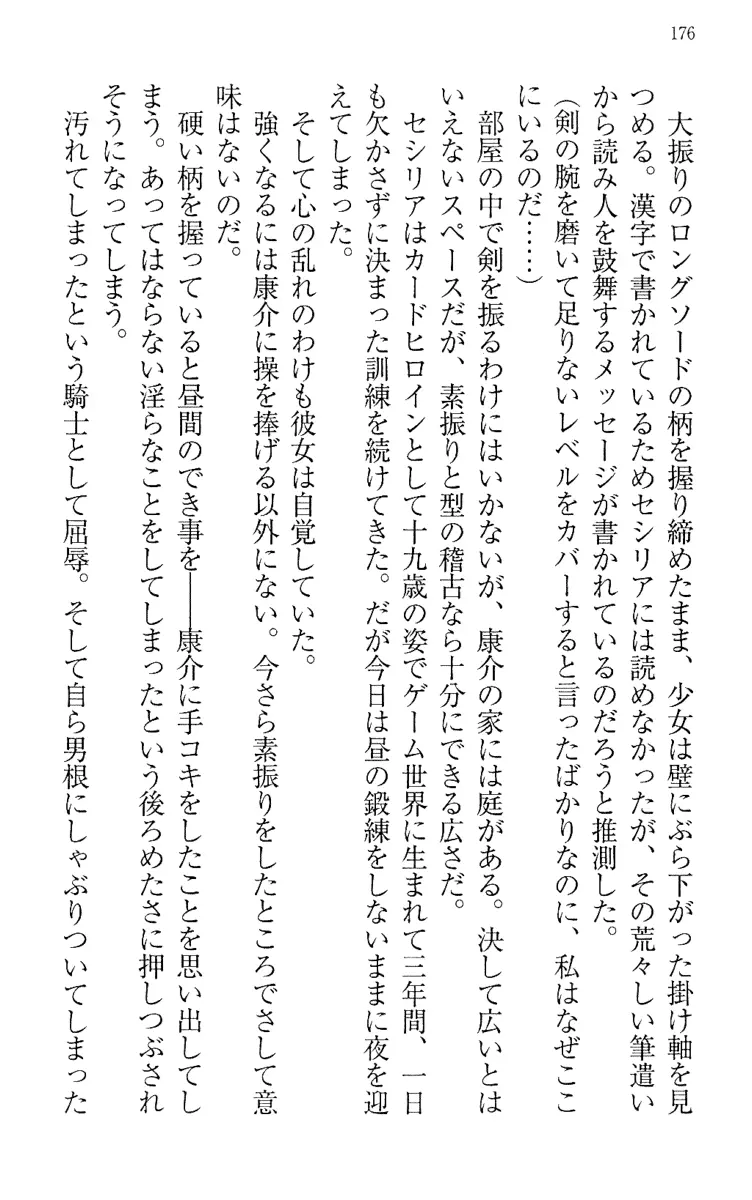 176
大振りのロングソードの柄を握り締めたまま、少女は壁にぶら下がった掛け軸を見
つめる。漢字で書かれているためセシリアには読めなかったが、その荒々しい筆遣い
から読み人を鼓舞するメッセージが書かれているのだろうと推測した。
(剣の腕を磨いて足りないレベルをカバーすると言ったばかりなのに、私はなぜここ
にいるのだ……)
部屋の中で剣を振るわけにはいかないが、康介の家には庭がある。決して広いとは
いえないスペースだが、素振りと型の稽古なら十分にできる広さだ。
セシリアはカードヒロインとして十九歳の姿でゲーム世界に生まれて三年間、一日
も欠かさずに決まった訓練を続けてきた。だが今日は昼の鍛練をしないままに夜を迎
えてしまった。
そして心の乱れのわけも彼女は自覚していた。
強くなるには康介に操を捧げる以外にない。今さら素振りをしたところでさして意
味はないのだ。
硬い柄を握っていると昼間のでき事を――康介に手コキをしたことを思い出してし
まう。あってはならない淫らなことをしてしまったという後ろめたさに押しつぶされ
そうになってしまう。
汚れてしまったという騎士として屈辱。そして自ら男根にしゃぶりついてしまった